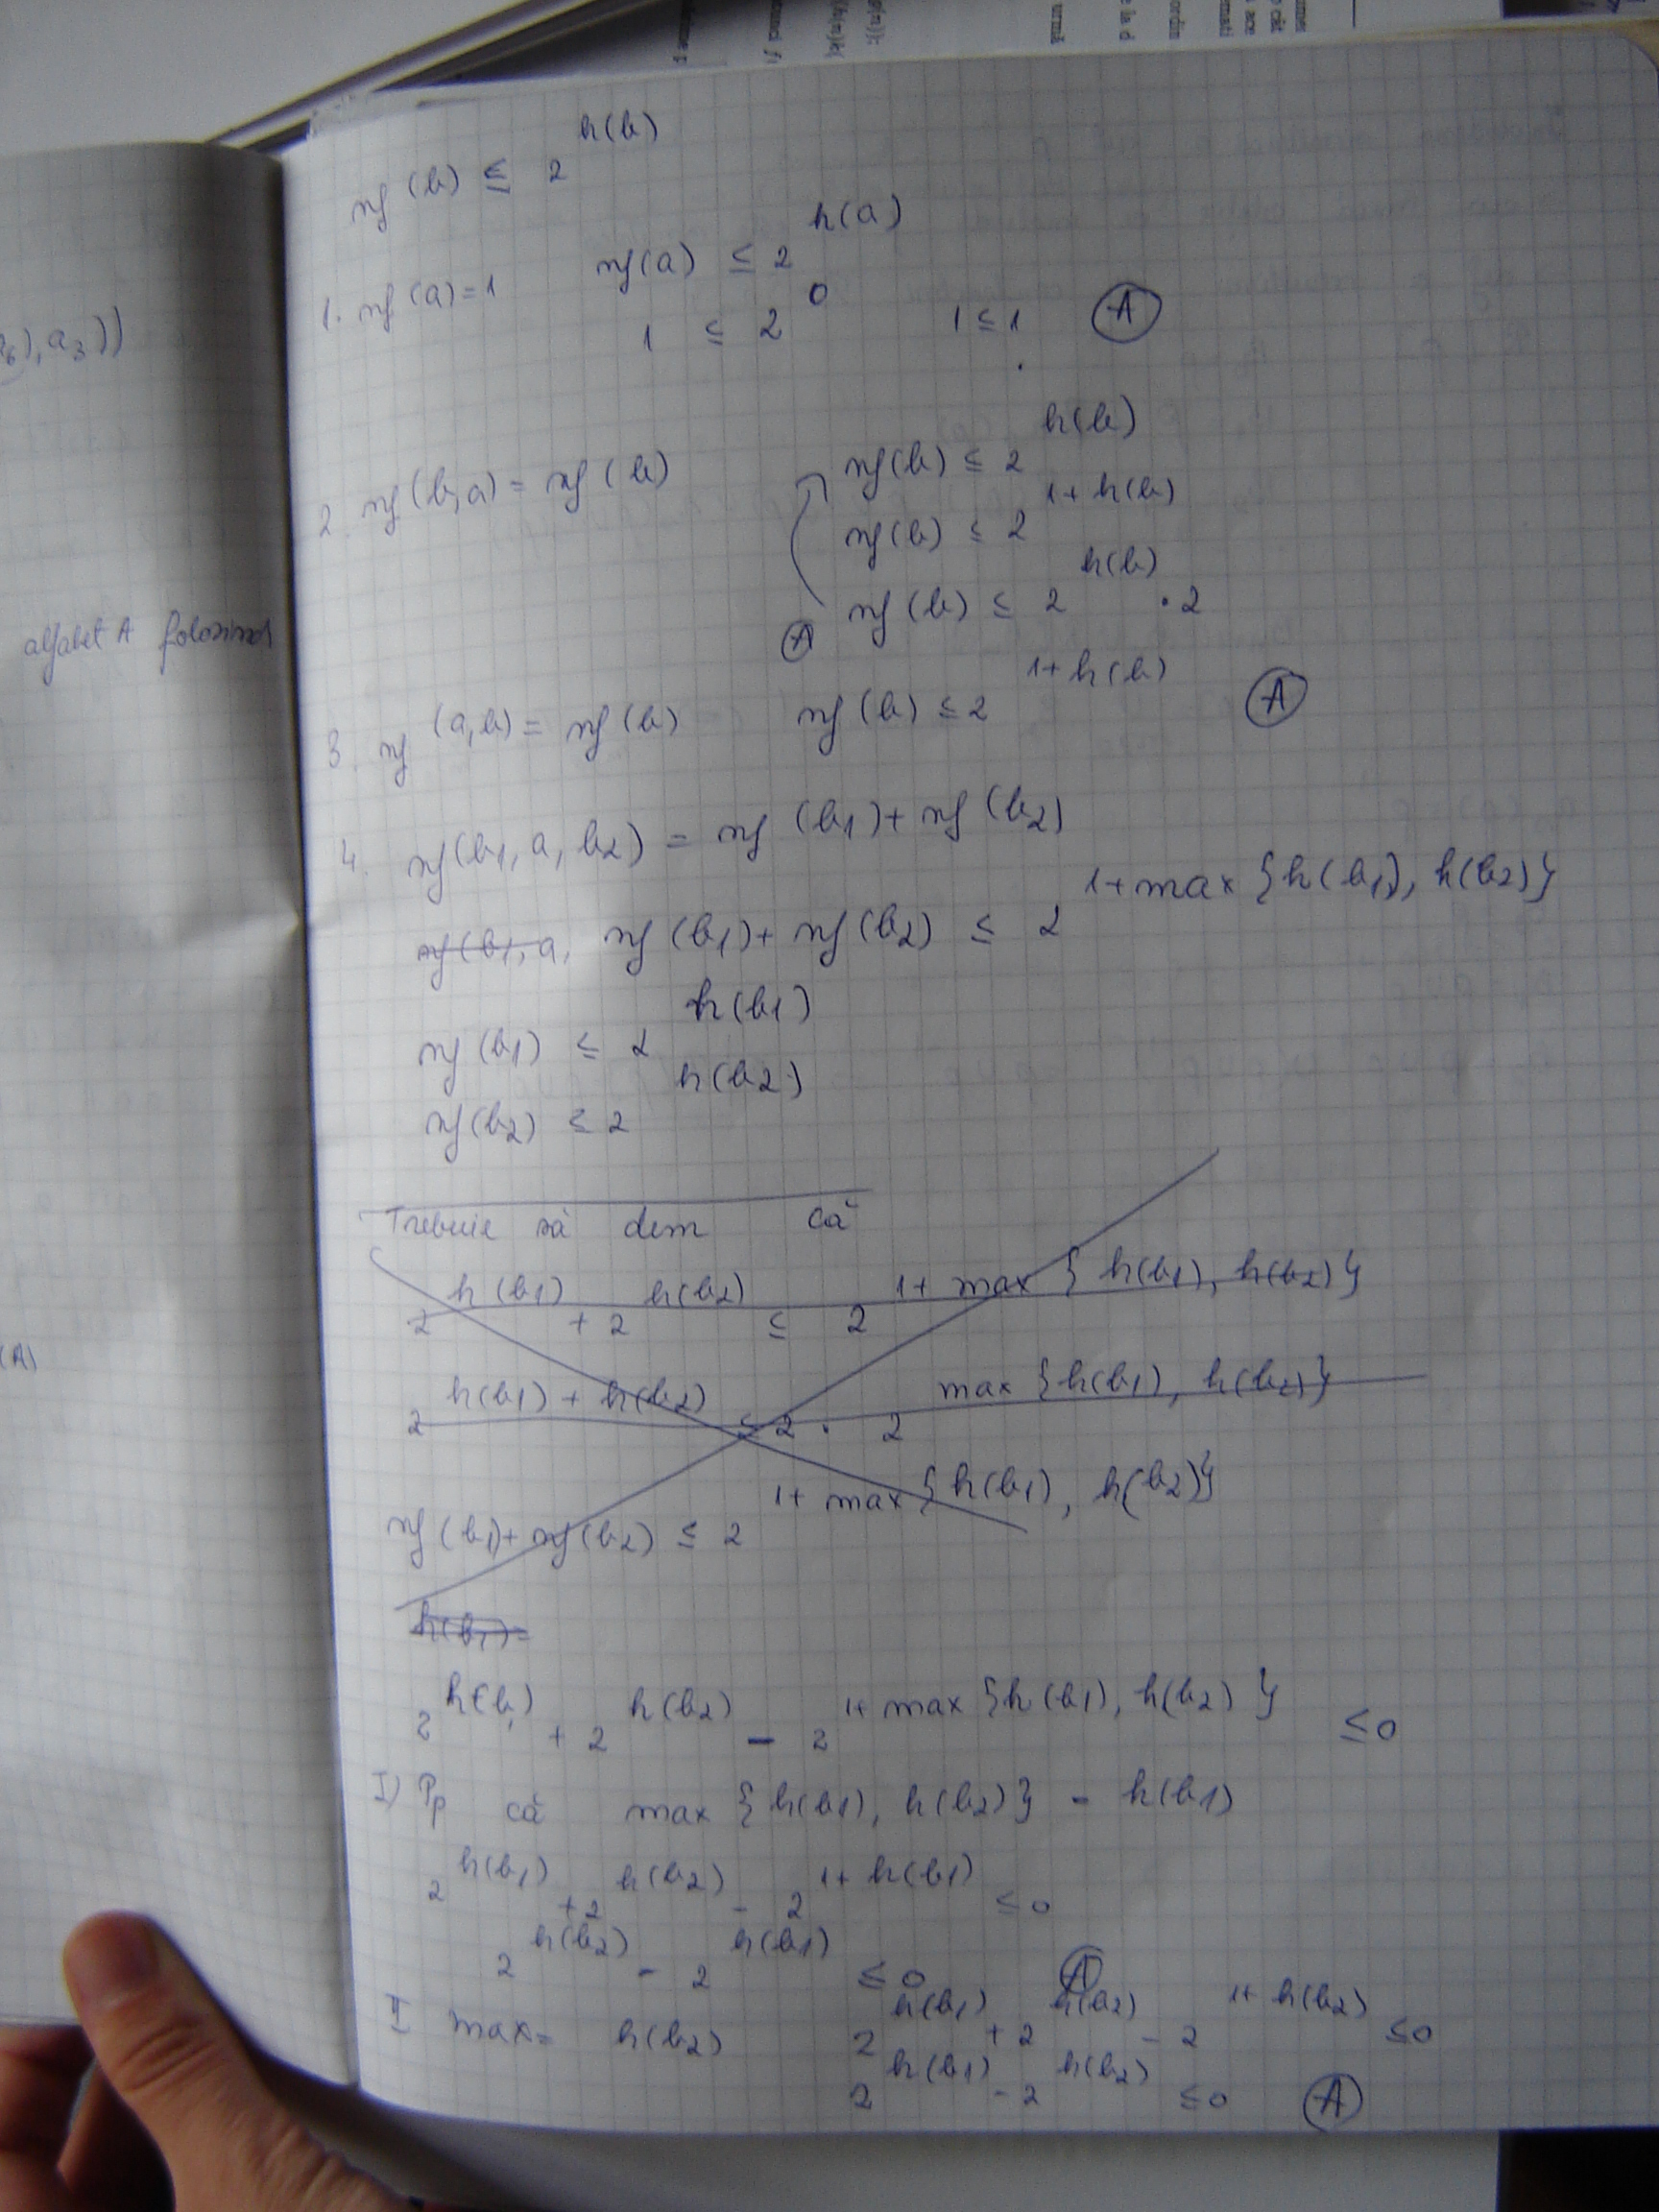 nf(b) ≤ 2^h(b)
1. nf(a)=1 nf(a) ≤ 2^h(a)
1 ≤ 2^0 1≤1 (A)
2. nf(b,a) = nf(b) nf(b) ≤ 2^h(b)
nf(b) ≤ 2^1+h(b)
(A) nf(b) ≤ 2^h(b) · 2
3. nf(a,b) = nf(b) nf(b) ≤ 2^1+h(b) (A)
4. nf(b1, a, b2) = nf(b1) + nf(b2)
nf(b1, a, nf(b1) + nf(b2) ≤ 2^1+max{h(b1), h(b2)}
nf(b1) ≤ 2^h(b1)
nf(b2) ≤ 2^h(b2)
Trebuie să dem că
2^h(b1) + 2^h(b2) ≤ 2^1+max{h(b1), h(b2)}
2^h(b1)+h(b2) ≤ 2 · 2^max{h(b1), h(b2)}
nf(b1)+nf(b2) ≤ 2^1+max{h(b1), h(b2)}
h(b1)=
2^h(b1) + 2^h(b2) - 2^1+max{h(b1), h(b2)} ≤0
I) Pp că max{h(b1), h(b2)} = h(b1)
2^h(b1) + 2^h(b2) - 2^1+h(b1) ≤0
2^h(b2) - 2^h(b1) ≤0 (A)
II max= h(b2) 2^h(b1) + 2^h(b2) - 2^1+h(b2) ≤0
2^h(b1) - 2^h(b2) ≤0 (A)
), a3))
alfabet A folosind
(A)